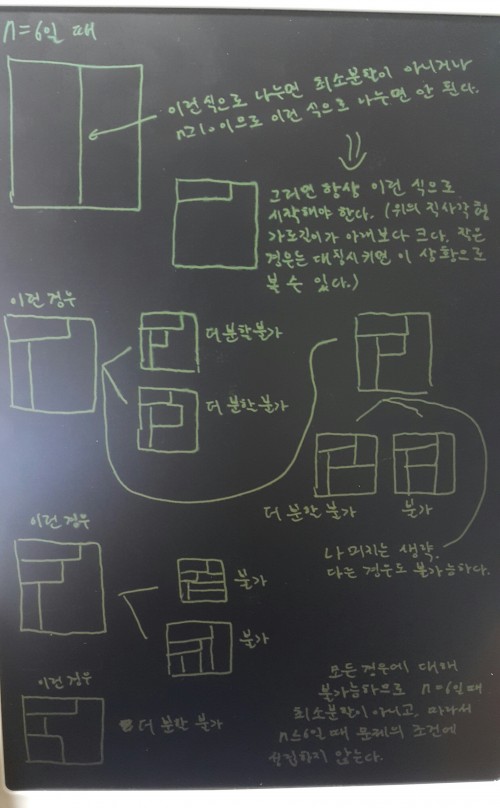 n=6일 때
이런 식으로 나누면 최소분할이 아니거나
n≥10이므로 이런 식으로 나누면 안 된다.
그러면 항상 이런 식으로
시작해야 한다. (위의 직사각형
가로길이가 아래보다 크다. 작은
경우는 대칭시키면 이 상황으로
볼 수 있다.)
이런 경우
더 분할불가
더 분할 불가
더 분할 불가
불가
나머지는 생략.
다른 경우도 불가능하다.
이런 경우
불가
불가
이런 경우
더 분할 불가
모든 경우에 대해
불가능하므로 n=6일 때
최소분할이 아니고, 따라서
n≤6일 때 문제의 조건에
성립하지 않는다.